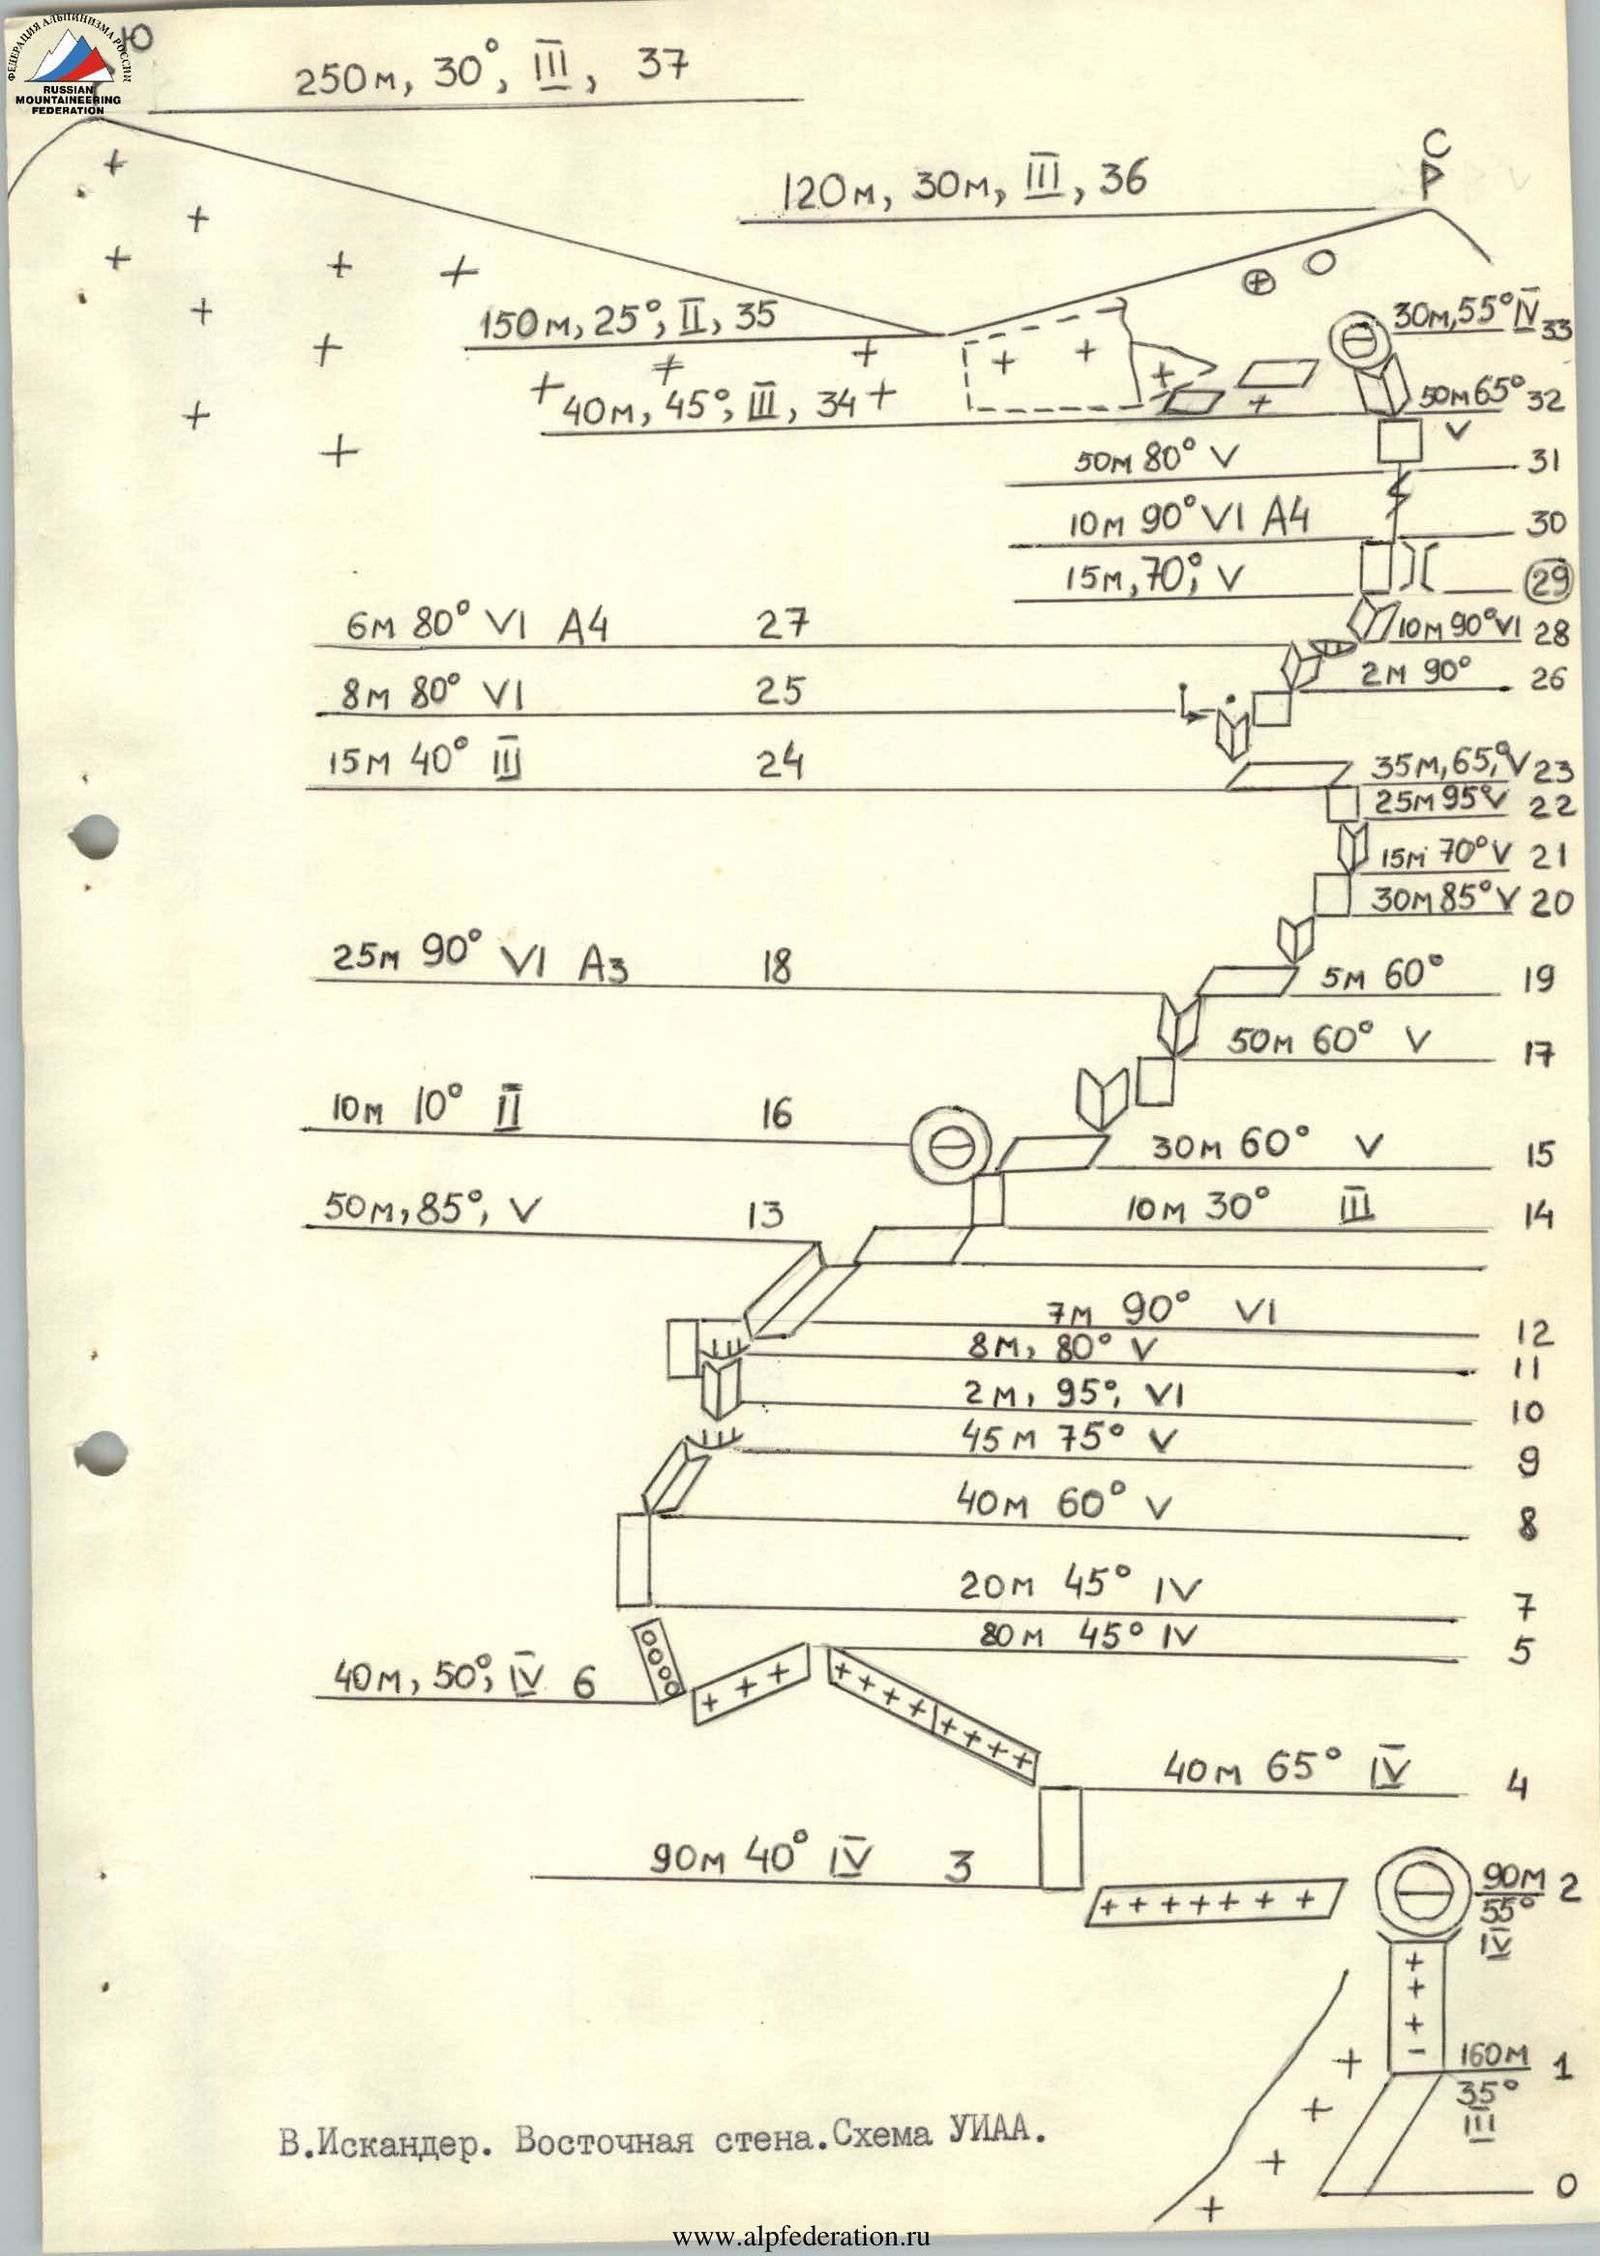 ФЕДЕРАЦИЯ АЛЬПИНИЗМА РОССИИ
RUSSIAN
MOUNTAINEERING
FEDERATION
Ю
250м, 30°, III, 37
С
Р
120м, 30м, III, 36
150м, 25°, II, 35
30м, 55° IV 33
40м, 45°, III, 34
50м 65° 32
V
50м 80° V 31
10м 90° VI А4 30
15м, 70°, V 29
6м 80° VI А4 27
10м 90° VI 28
8м 80° VI 25
2м 90° 26
15м 40° III 24
35м, 65°, V 23
25м 95° V 22
15м 70° V 21
30м 85° V 20
25м 90° VI А3 18
5м 60° 19
50м 60° V 17
10м 10° II 16
30м 60° V 15
50м, 85°, V 13
10м 30° III 14
7м 90° VI 12
8м, 80° V 11
2м, 95°, VI 10
45м 75° V 9
40м 60° V 8
20м 45° IV 7
80м 45° IV 5
40м, 50°, IV 6
40м 65° IV 4
90м 40° IV 3
90м 2
55°
IV
160м 1
35°
III
0
В.Искандер. Восточная стена.Схема УИАА.
www.alpfederation.ru